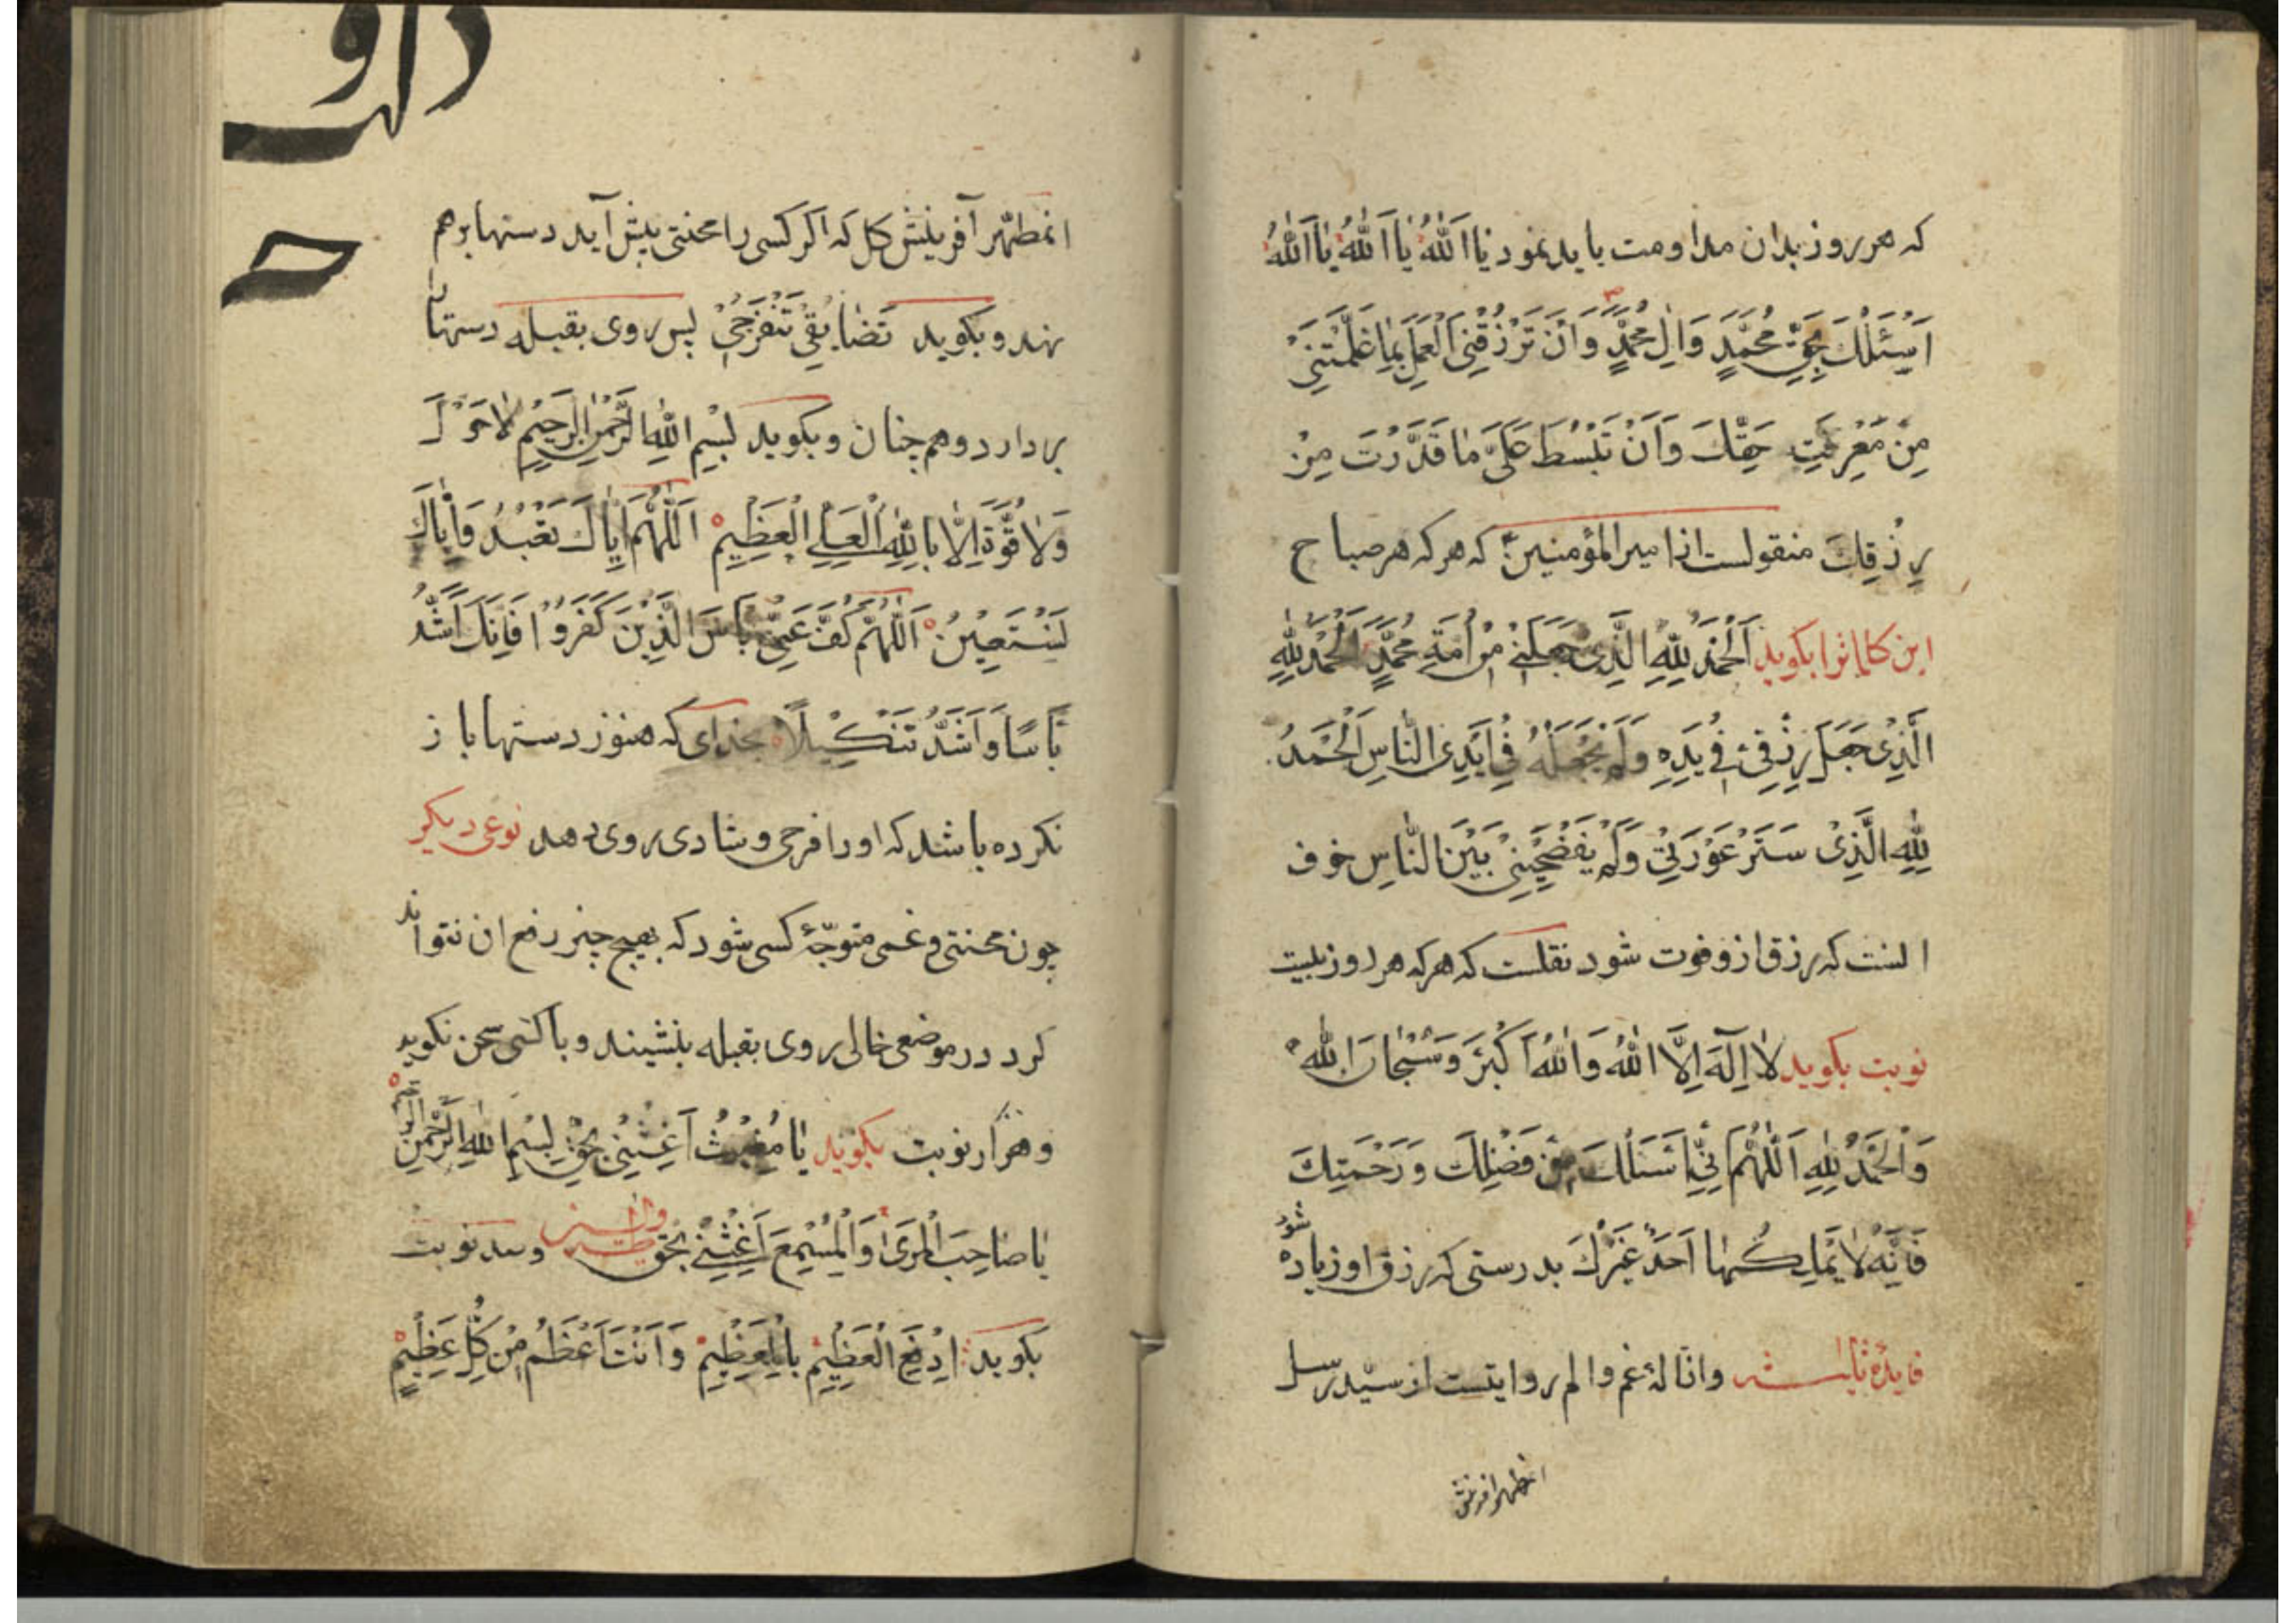 که هر روز بدان مداومت باید نمود یٰا اَللّٰهُ یٰا اَللّٰهُ یٰا اَللّٰهُ
اَسْئَلُكَ بِحَقِّ مُحَمَّدٍ وَاٰلِ مُحَمَّدٍ وَاَنْ تَرْزُقَنِی الْعَمَلَ بِمٰا عَلَّمْتَنِیْ
مِنْ مَعْرِفَتِ حَقِّكَ وَاَنْ تَبْسُطَ عَلَیَّ مٰا قَدَّرْتَ مِنْ
رِزْقِكَ منقولست از امیر المؤمنین که هر که هر صباح
این کلماترا بکوید اَلْحَمْدُ لِلّٰهِ الَّذِی جَعَلَنِیْ مِنْ اُمَّةِ مُحَمَّدٍ اَلْحَمْدُ لِلّٰهِ
الَّذِیْ جَعَلَ رِزْقِیْ فِیْ یَدِهِ وَلَمْ یَجْعَلْهُ فِیْ اَیْدِی النّٰاسِ اَلْحَمْدُ
لِلّٰهِ الَّذِیْ سَتَرَ عَوْرَتِیْ وَلَمْ یَفْضَحْنِیْ بَیْنَ النّٰاسِ خوف
انست که رزق ازو فوت شود نقلست که هر که هر روز بیست
نوبت بکوید لاٰ اِلٰهَ اِلاَّ اللّٰهُ وَاللّٰهُ اَکْبَرُ وَسُبْحٰانَ اللّٰه
وَالْحَمْدُ لِلّٰهِ اَللّٰهُمَّ اِنِّیْ اَسْئَلُكَ مِنْ فَضْلِكَ وَرَحْمَتِكَ
فَاِنَّهُ لاٰ یَمْلِكُهٰا اَحَدٌ غَیْرُكَ بدرستی که رزق او زیاده شود
فایدهٔ ثالث در ازالهٔ غم و الم روایتست از سیّد رسل
انمطهر افرینش
انمطهّر آفرینش کل که اکر کسی را محنتی پیش آید دستها بر هم
نهد و بکوید تَضٰایَقِیْ تَنْفَرِجِیْ پس روی بقبله دستها
بردارد و همچنان و بکوید بِسْمِ اللّٰهِ الرَّحْمٰنِ الرَّحِیْمِ لاٰ حَوْلَ
وَلاٰ قُوَّةَ اِلاّٰ بِاللّٰهِ الْعَلِیِّ الْعَظِیْمِ اَللّٰهُمَّ اِیّٰاكَ نَعْبُدُ وَاِیّٰاكَ
نَسْتَعِیْنُ اَللّٰهُمَّ کُفَّ عَنِّیْ بَاْسَ الَّذِیْنَ کَفَرُوْا فَاِنَّكَ اَشَدُّ
بَاْسًا وَاَشَدُّ تَنْکِیْلاً بخدای که هنوز دستها باز
نکرده باشد که او را فرحی و شادی روی دهد نوعی دیکر
چون محنتی و غمی متوجّهٔ کسی شود که بهیچ چیز دفع ان نتواند
کرد در موضعی خالی روی بقبله بنشیند و با کسی سخن نکوید
و هزار نوبت بکوید یٰا مُغِیْثُ اَغِثْنِیْ بِحَقِّ بِسْمِ اللّٰهِ الرَّحْمٰنِ الرَّحِیْمِ
یٰا صٰاحِبَ الْمَرْیٰ وَالْمُسْمِعَ اَغِثْنِیْ بِحَقِّ و سد نوبت
بکوید اِدْفَعِ الْعَظِیْمَ بِالْعَظِیْمِ وَاَنْتَ اَعْظَمُ مِنْ کُلِّ عَظِیْمٍ